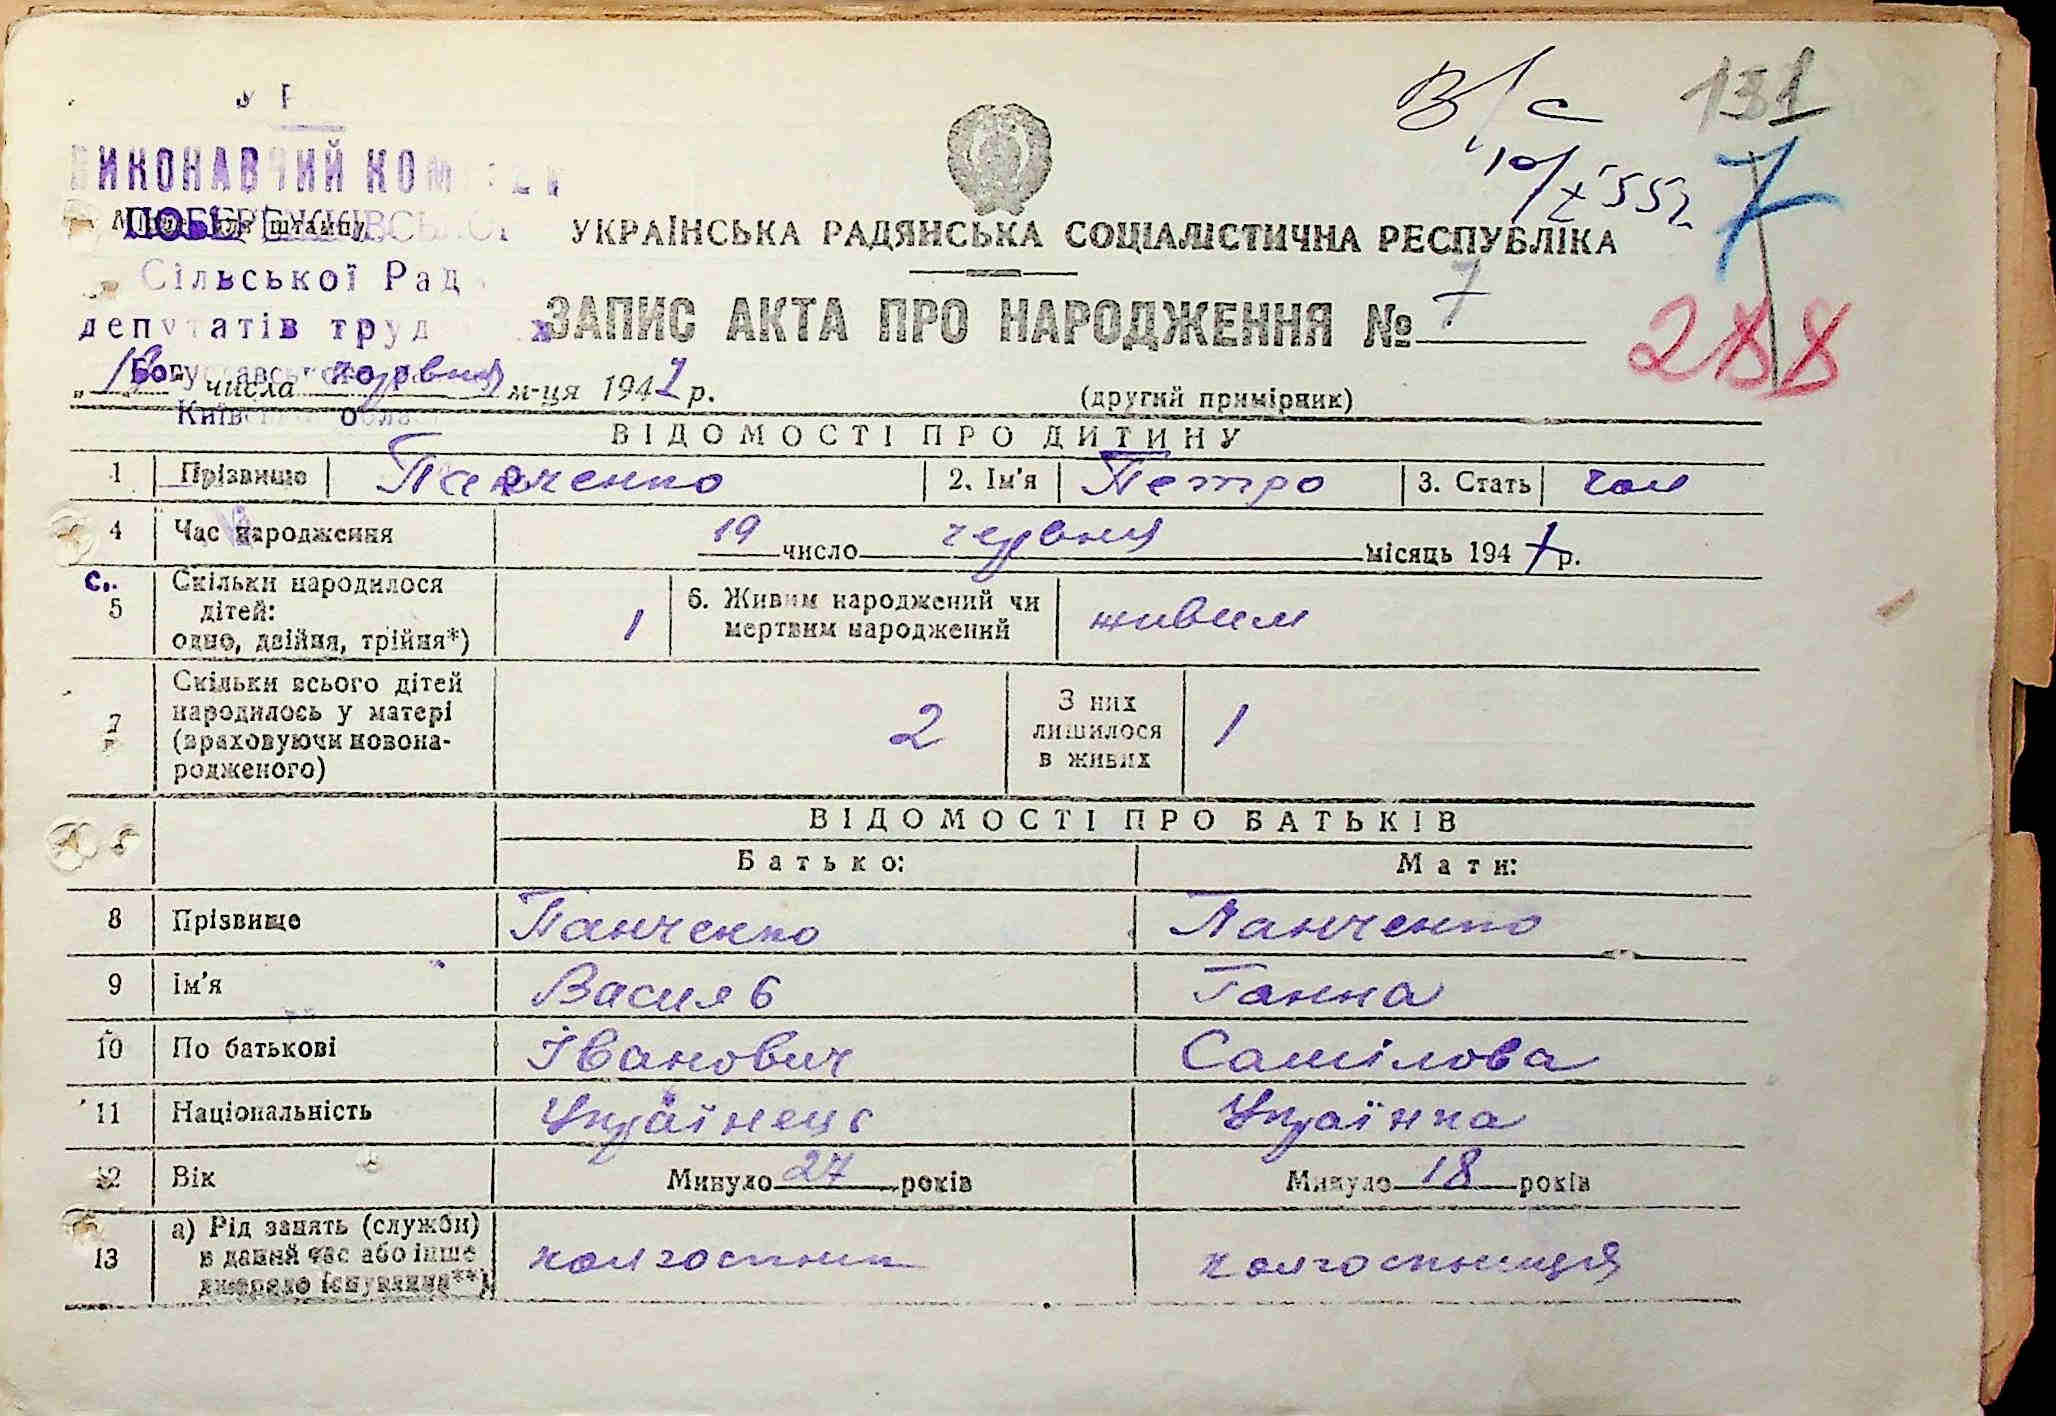 В/с 131
10/X 55р
7
ВИКОНАВЧИЙ КОМІТЕТ
Місце для штампу
УКРАЇНСЬКА РАДЯНСЬКА СОЦІАЛІСТИЧНА РЕСПУБЛІКА
Сільської Рад
депутатів труд х
ЗАПИС АКТА ПРО НАРОДЖЕННЯ № 7
288
числа червня м-ця 1947 р.
(другий примірник)
ВІДОМОСТІ ПРО ДИТИНУ
1 Прізвище Панченко 2. Ім'я Петро 3. Стать чол
4 Час народження 19 число червня місяць 1947 р.
5 Скільки народилося дітей: одно, двійня, трійня*) 1 6. Живим народжений чи мертвим народжений живим
7 Скільки всього дітей народилось у матері (враховуючи новонародженого) 2 З них лишилося в живих 1
ВІДОМОСТІ ПРО БАТЬКІВ
Батько: Мати:
8 Прізвище Панченко Панченко
9 Ім'я Василь Ганна
10 По батькові Іванович Самілова
11 Національність Українець Українка
12 Вік Минуло 27 років Минуло 18 років
13 а) Рід занять (служби) в даний час або інше джерело існування**) колгоспник колгоспниця